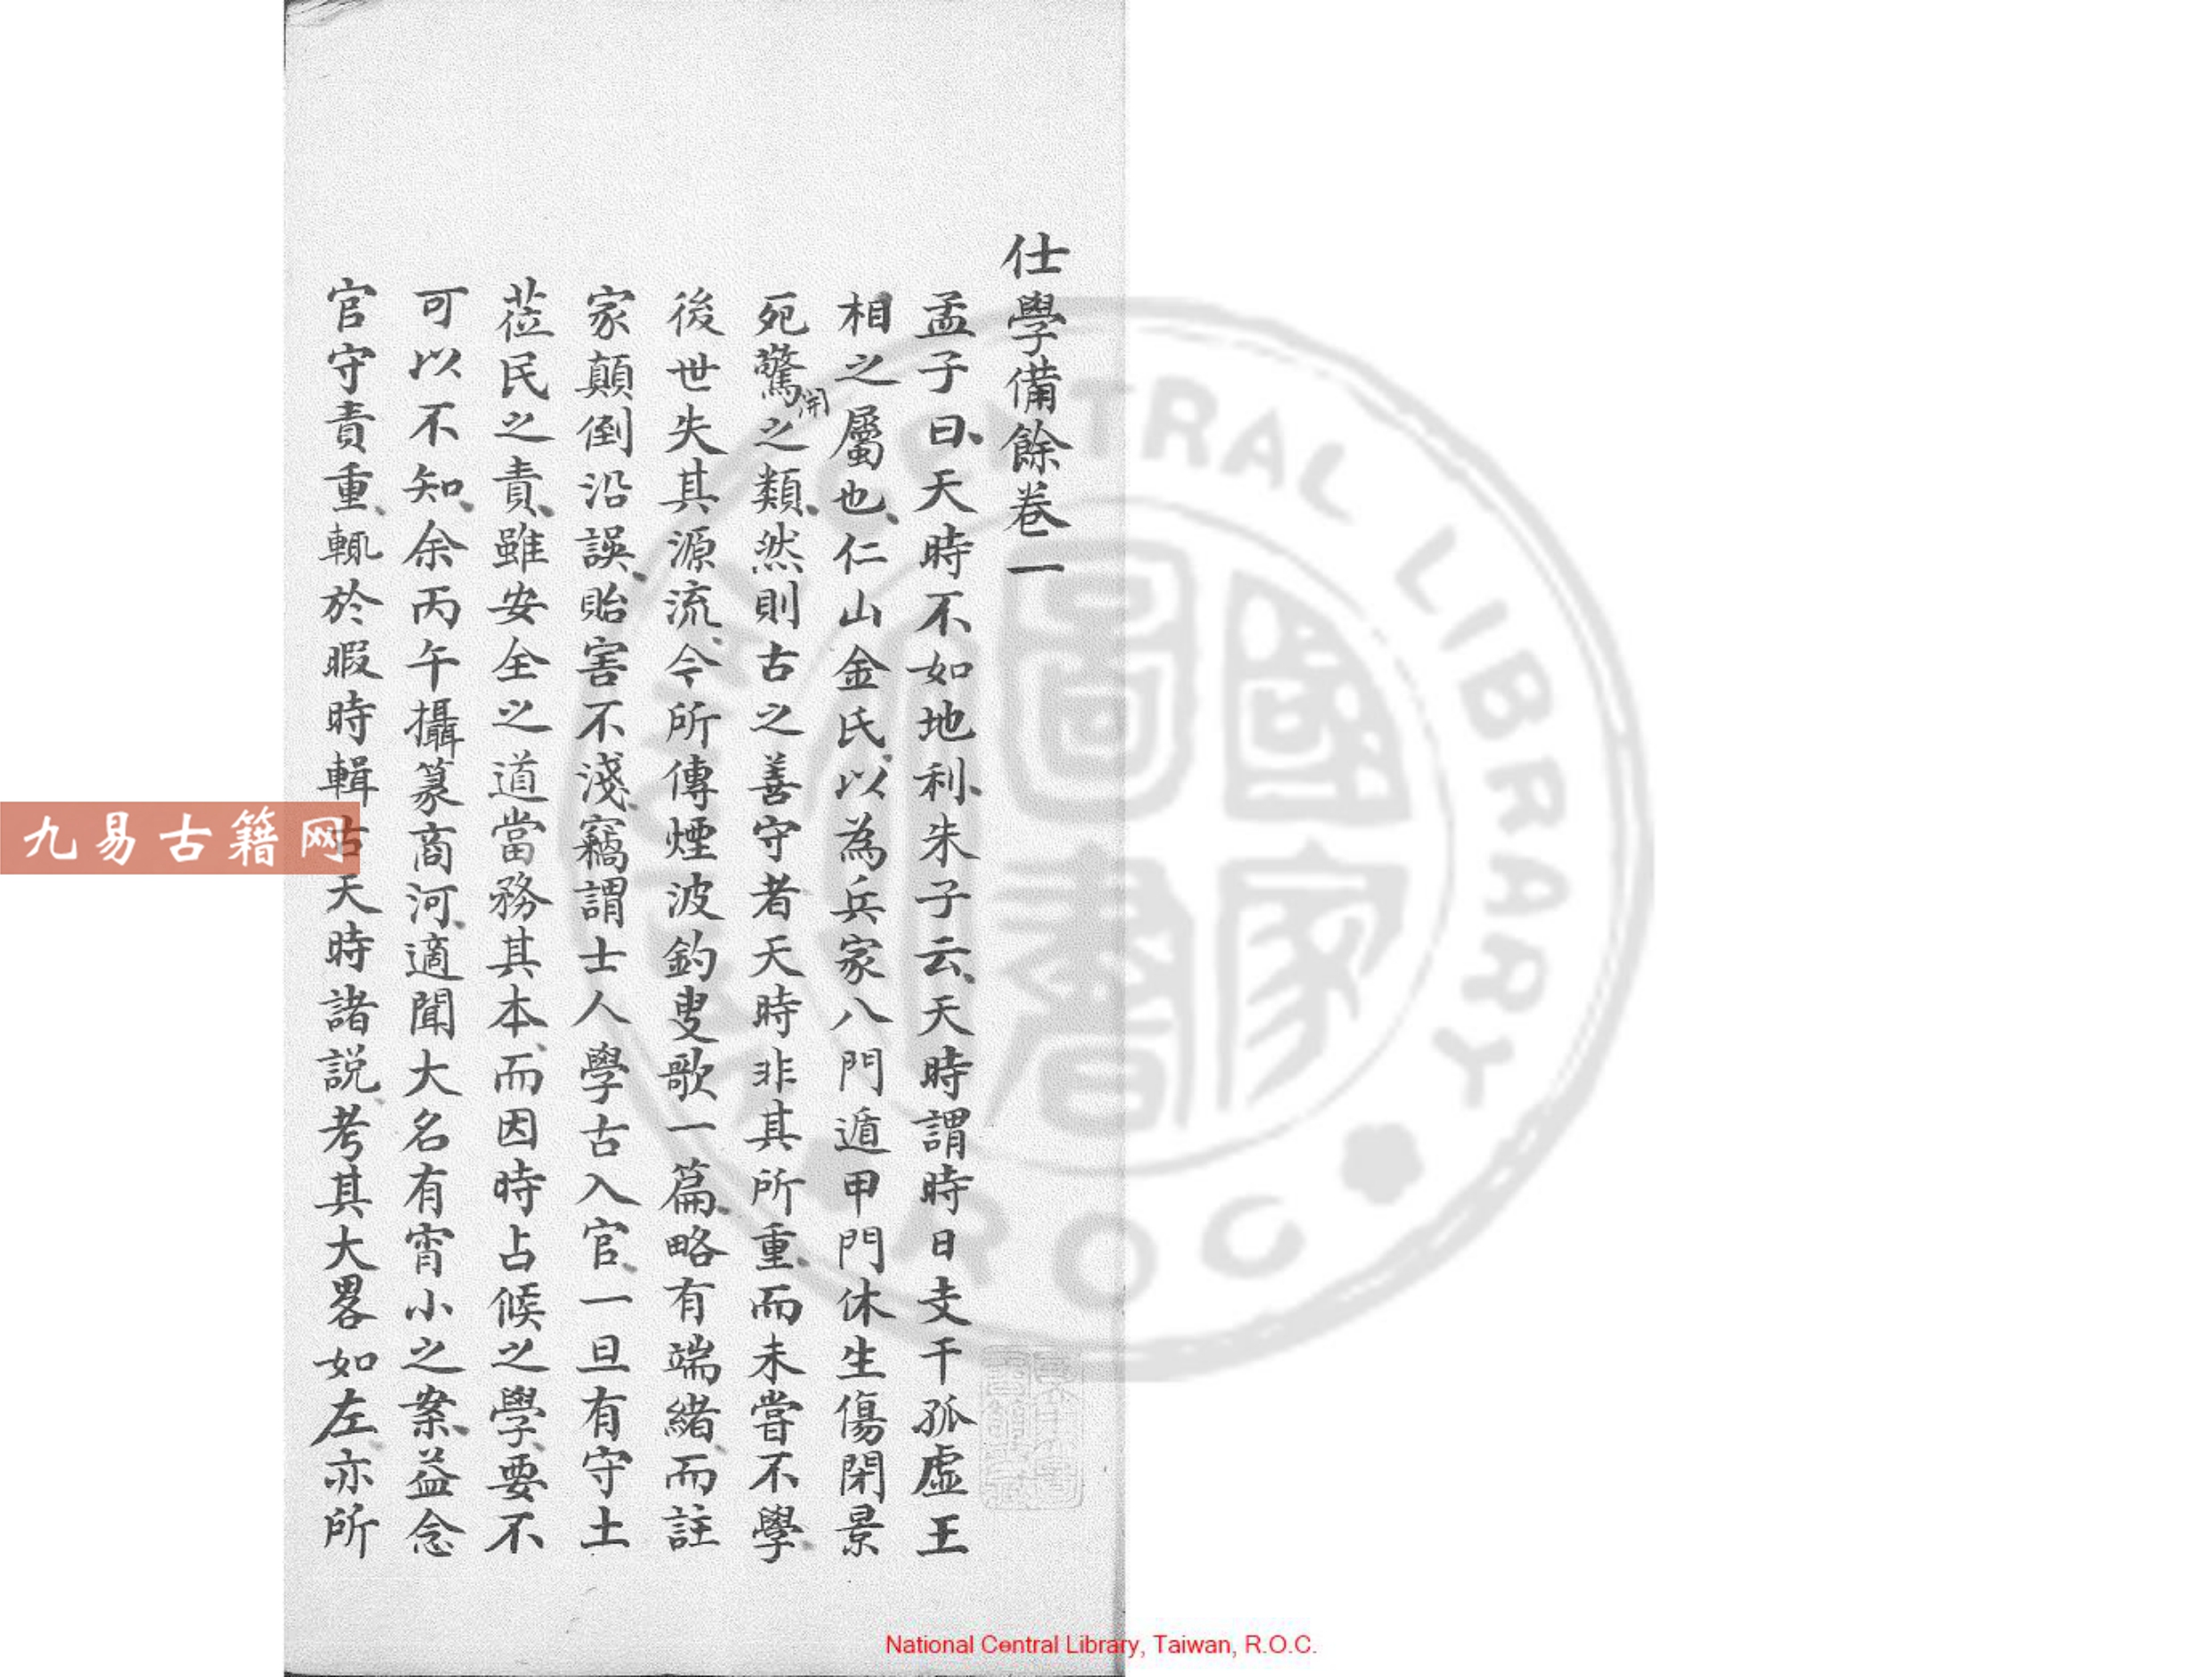 仕學備餘卷一
孟子曰天時不如地利朱子云天時謂時日支干孤虛王
相之屬也仁山金氏以為兵家八門遁甲門休生傷閉景
死驚開之類然則古之善守者天時非其所重而未嘗不學
後世失其源流今所傳煙波釣叟歌一篇略有端緒而註
家顛倒沿誤貽害不淺竊謂士人學古入官一旦有守土
蒞民之責雖安全之道當務其本而因時占候之學要不
可以不知余丙午攝篆商河適聞大名有宵小之案益念
官守責重輒於暇時輯古天時諸説考其大畧如左亦所
九易古籍网
NATIONAL CENTRAL LIBRARY
R.O.C
國家圖書館
National Central Library, Taiwan, R.O.C.